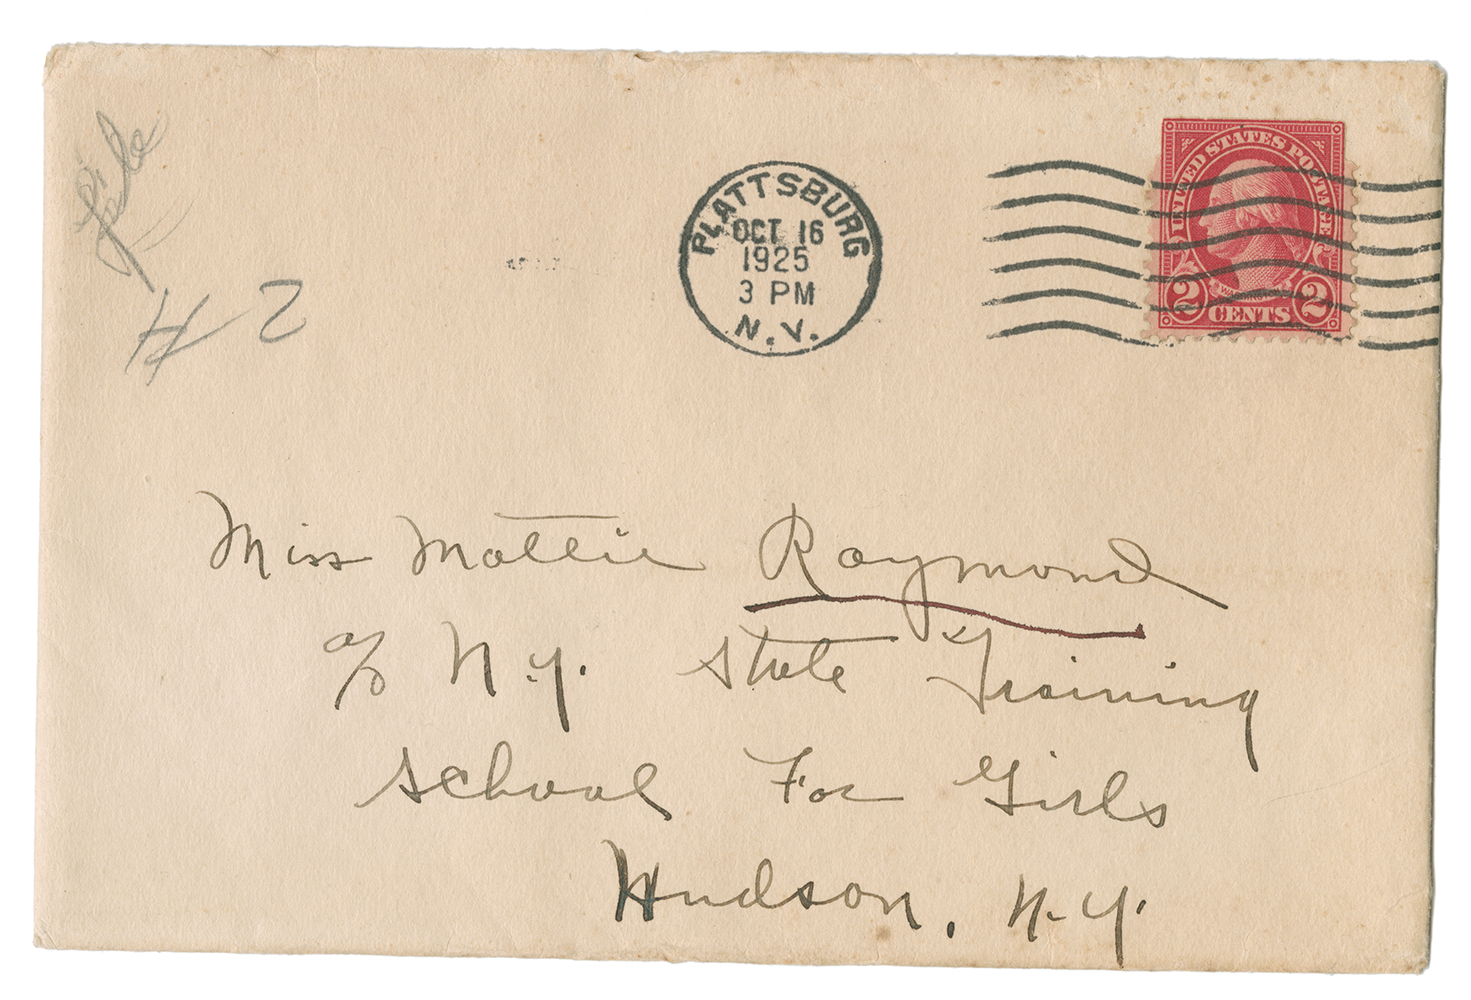 File
# 2
PLATTSBURG
OCT 16
1925
3 PM
N.Y.
UNITED STATES POSTAGE
2 CENTS 2
Miss Mattie Raymond
c/o N.Y. State Training
School For Girls
Hudson, N.Y.